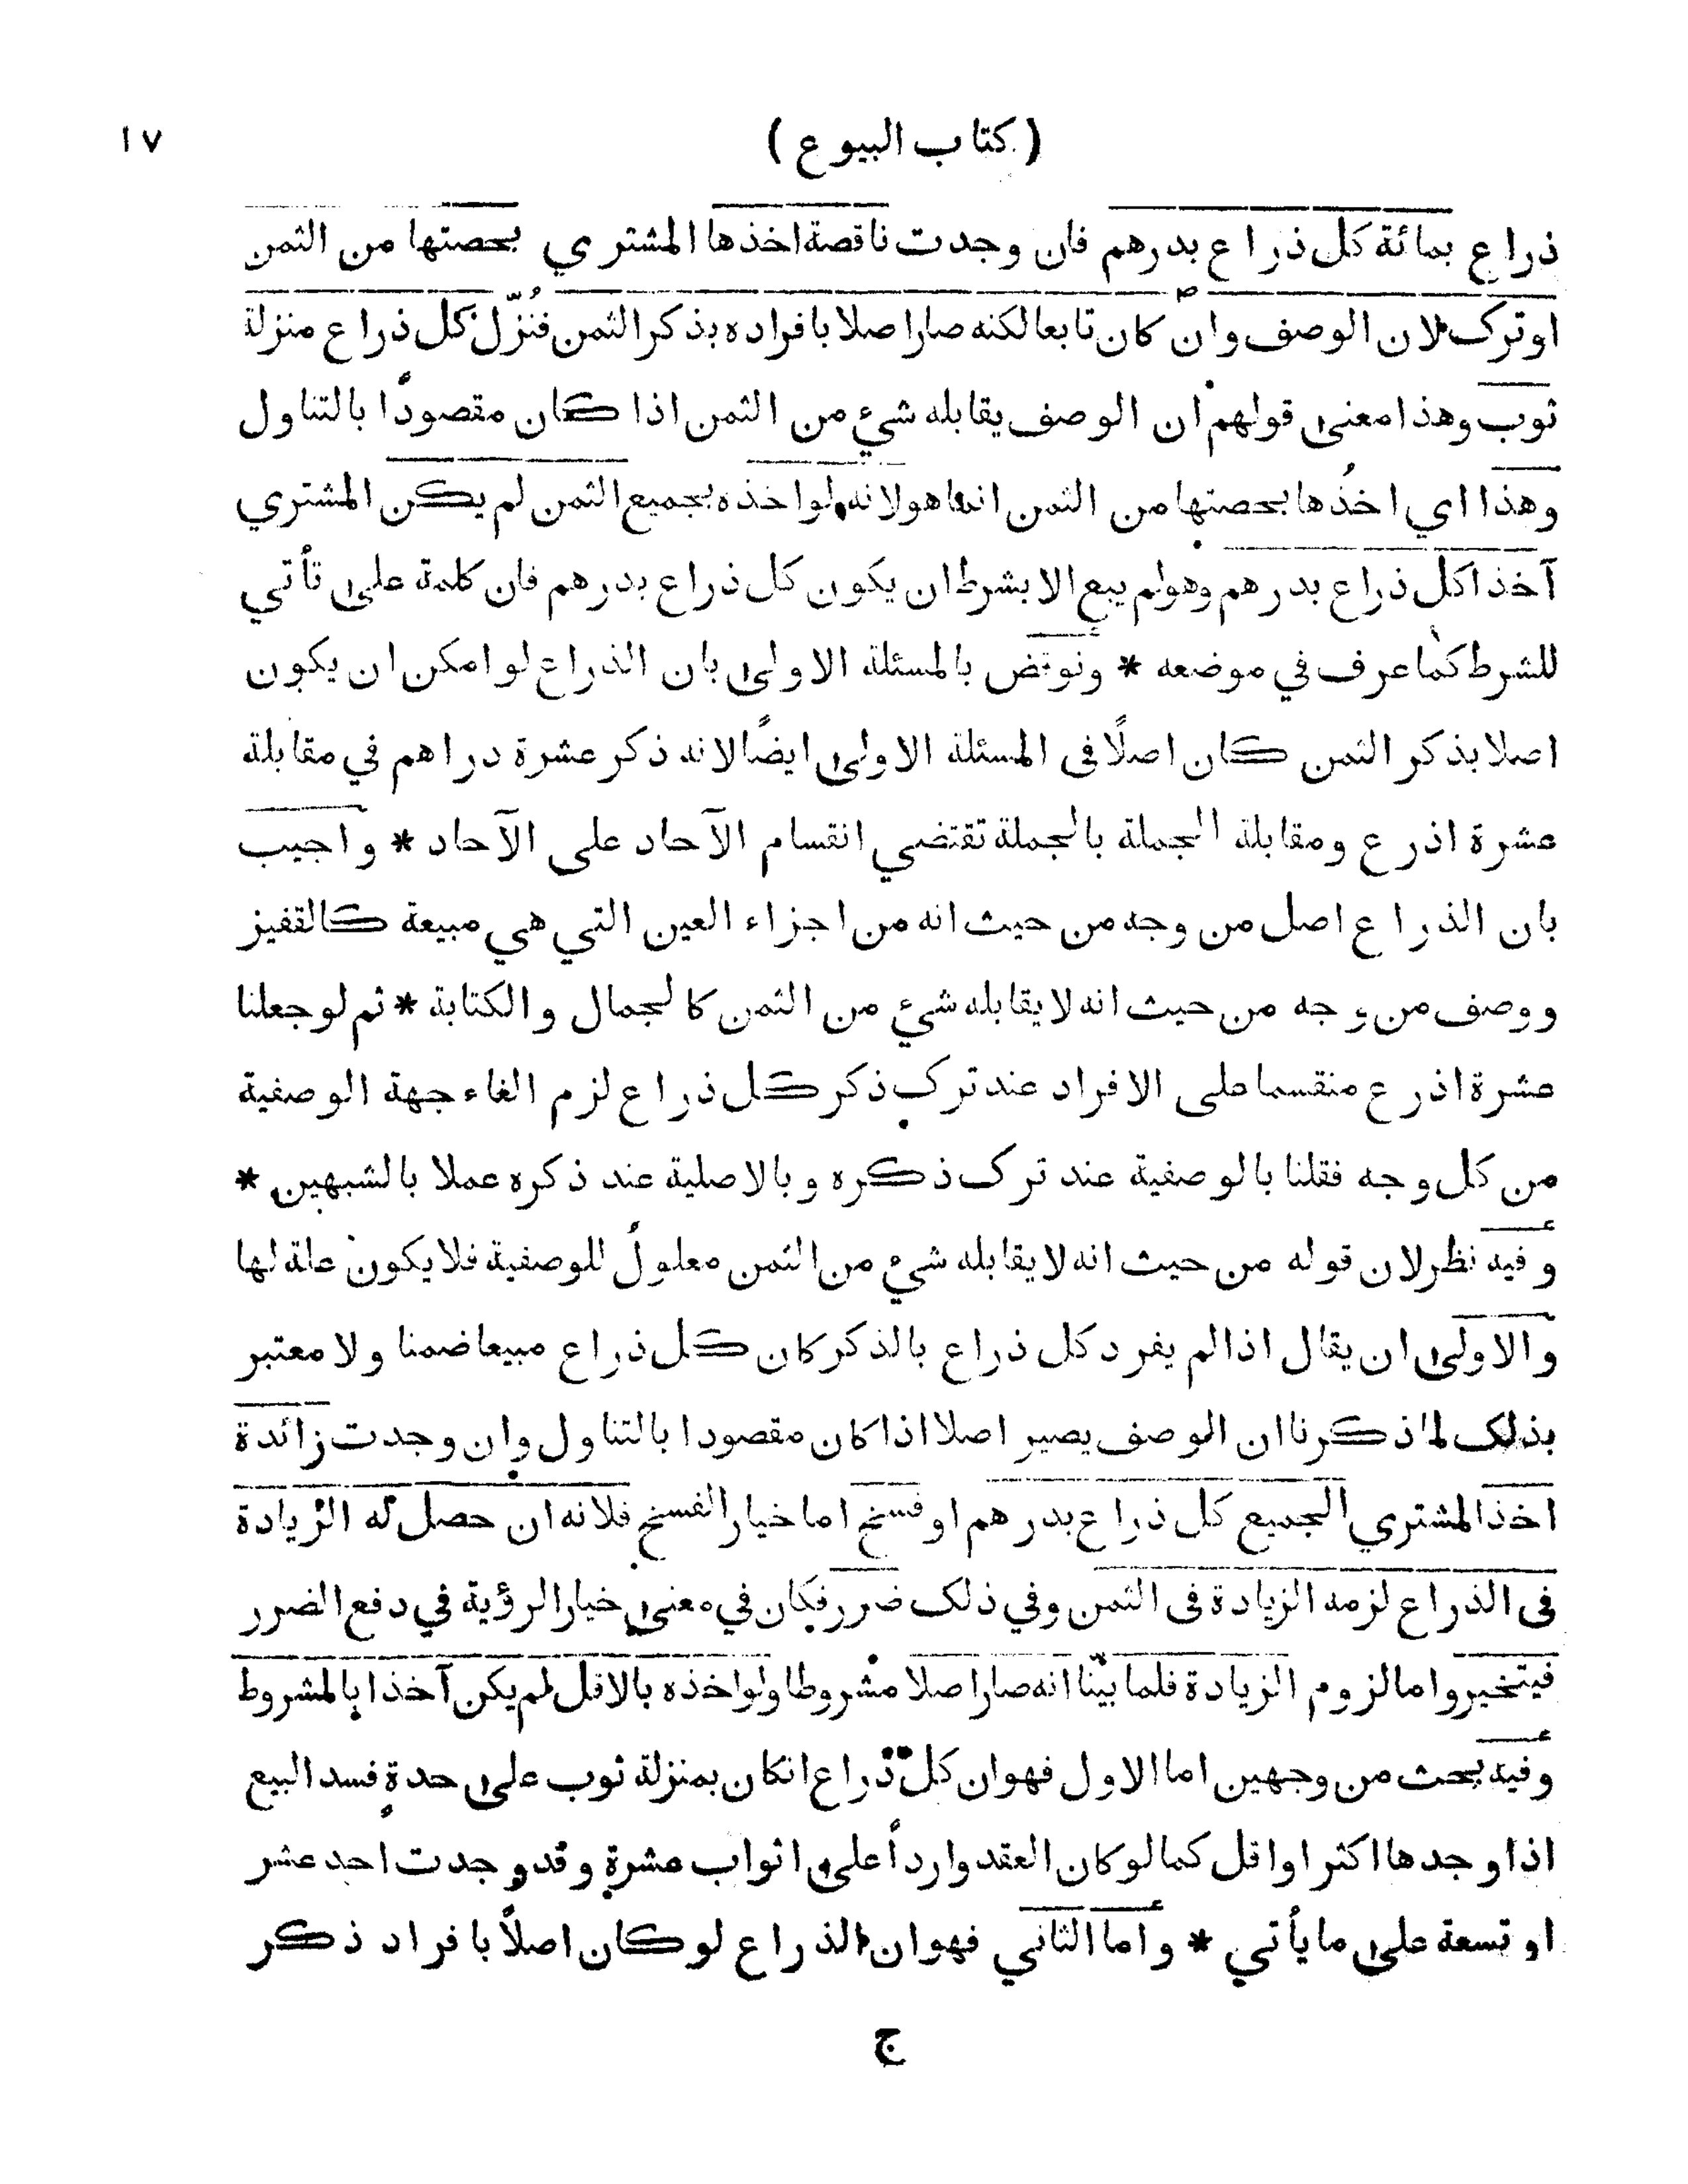 ( كتاب البيوع ) ١٧
ذراع بمائة كل ذراع بدرهم فان وجدت ناقصة اخذها المشتري بحصتها من الثمن
او ترك لان الوصف وان كان تابعا لكنه صار اصلا بافراده بذكر الثمن فنُزّل كل ذراع منزلة
ثوب وهذا معنى قولهم ان الوصف يقابله شيء من الثمن اذا كان مقصودًا بالتناول
وهذا اي اخذُها بحصتها من الثمن انما هو لانه لو اخذه بجميع الثمن لم يكن المشتري
آخذا كل ذراع بدرهم وهو لم يبع الا بشرط ان يكون كل ذراع بدرهم فان كلمة على تأتي
للشرط كما عرف في موضعه * ونوقض بالمسئلة الاولى بان الذراع لو امكن ان يكون
اصلا بذكر الثمن كان اصلًا فى المسئلة الاولى ايضًا لانه ذكر عشرة دراهم في مقابلة
عشرة اذرع ومقابلة الجملة بالجملة تقتضي انقسام الآحاد على الآحاد * واجيب
بان الذراع اصل من وجه من حيث انه من اجزاء العين التي هي مبيعة كالقفيز
ووصف من وجه من حيث انه لا يقابله شيء من الثمن كالجمال والكتابة * ثم لو جعلنا
عشرة اذرع منقسما على الافراد عند ترك ذكر كل ذراع لزم الغاء جهة الوصفية
من كل وجه فقلنا بالوصفية عند ترك ذكره وبالاصلية عند ذكره عملا بالشبهين *
وفيه نظر لان قوله من حيث انه لا يقابله شيء من الثمن معلولُ للوصفية فلا يكون علة لها
والاولى ان يقال اذا لم يفرد كل ذراع بالذكر كان كل ذراع مبيعا ضمنا ولا معتبر
بذلك لما ذكرنا ان الوصف يصير اصلا اذا كان مقصودا بالتناول وان وجدت زائدة
اخذ المشتري الجميع كل ذراع بدرهم او فسخ اما خيار الفسخ فلانه ان حصل له الزيادة
فى الذراع لزمه الزيادة فى الثمن وفي ذلك ضرر فكان في معنى خيار الرؤية في دفع الضرر
فيتخير واما لزوم الزيادة فلما بيّنا انه صار اصلا مشروطا ولو اخذه بالاقل لم يكن آخذا بالمشروط
وفيه بحث من وجهين اما الاول فهو ان كل ذراع انكان بمنزلة ثوب على حدةٍ فسد البيع
اذا وجدها اكثر او اقل كما لو كان العقد واردأً على اثواب عشرةٍ وقد وجدت احد عشر
او تسعة على ما يأتي * واما الثاني فهو ان الذراع لو كان اصلاً بافراد ذكر
ج